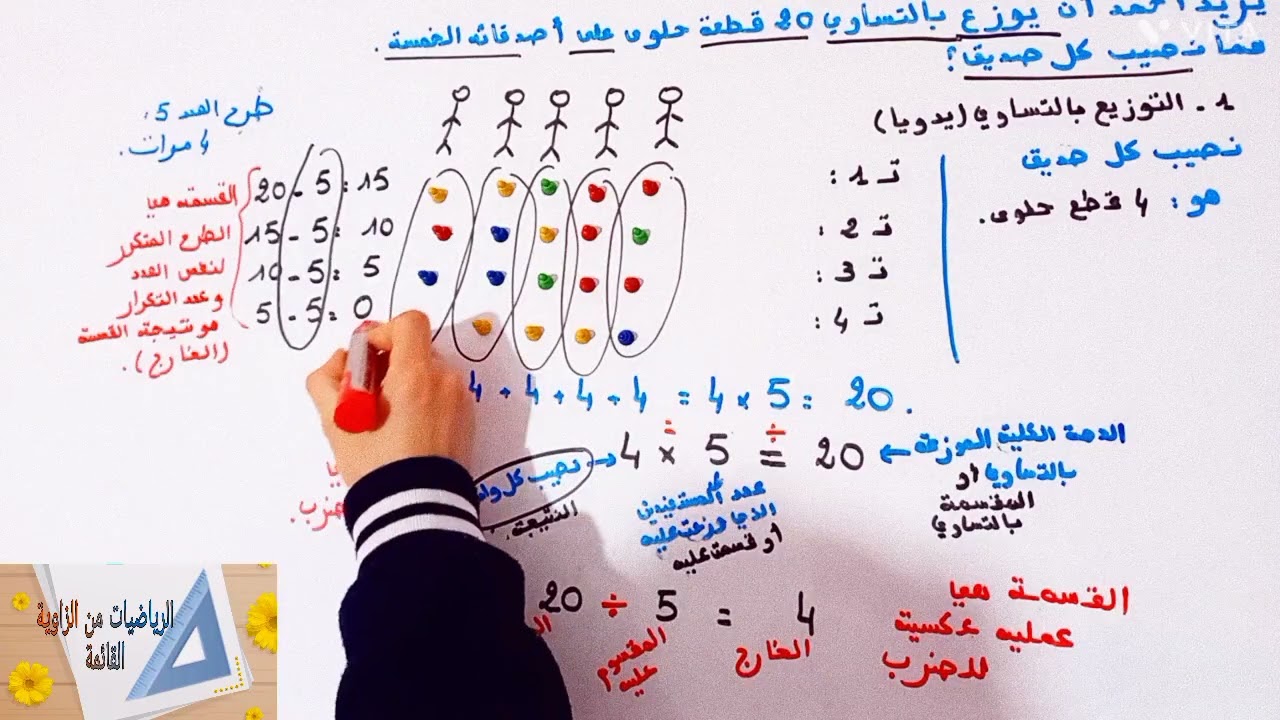 يريد أحمد أن يوزع بالتساوي 20 قطعة حلوى على أصدقائه الخمسة.
فما نصيب كل صديق؟
VITA
1 - التوزيع بالتساوي (يدويا)
نصيب كل صديق
هو: 4 قطع حلوى.
تـ 1 :
تـ 2 :
تـ 3 :
تـ 4 :
طرح العدد 5:
4 مرات.
20 - 5 = 15
15 - 5 = 10
10 - 5 = 5
5 - 5 = 0
القسمة هيا
الطرح المتكرر
لنفس العدد
وعدد التكرار
هو نتيجة القسمة
(الخارج).
4 + 4 + 4 + 4 = 4 × 5 = 20.
÷
4 × 5 = 20
الحصة الكلية الموزعة
بالتساوي أو
المقسمة
بالتساوي
نصيب كل واحد
النتيجة.
عدد المستفيدين
الذي وزعت عليه
أو قسمت عليه
20 ÷ 5 = 4
المقسوم
عليه
الخارج
القسمة هيا
عملية عكسية
للضرب
الرياضيات من الزاوية
القائمة